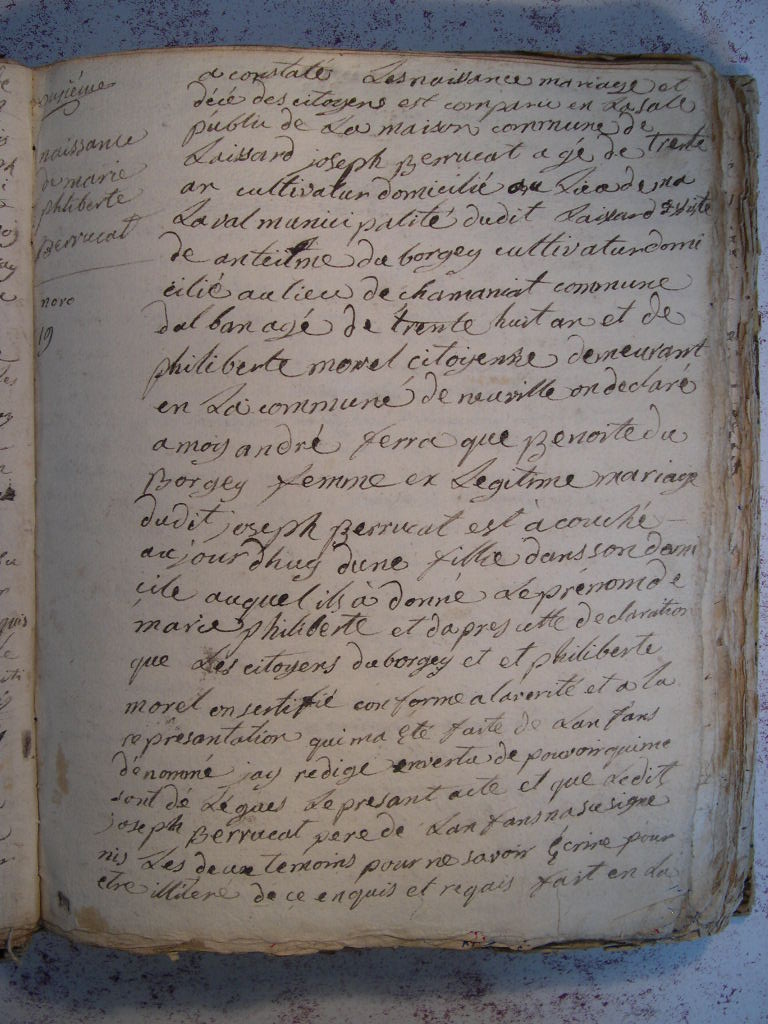 naissance
de marie
philiberte
Berrucat
noro
19
a constaté Les naissance mariage et
décé des citoyens est comparu en La sale
publie de La maison commune de
Laissard joseph Berrucat agé de trente
an cultivatur domicilié au Lieu de na
Laval municipalité dudit Laissard
de anteilme du borgey cultivatur domi
cilié au lieu de chamaniat commune
dalban agé de trente huit an et de
philiberte morel citoyenne demeurant
en La commune de neuville on declaré
a moy andré ferra que Benoite du
Borgey femme ex Legitime mariage
dudit joseph Berrucat est àcouché
aujourdhuy dune fillie dans son domi
cile auquel ils à donné Le prénom de
marie philiberte et dapres cette declaration
que Les citoyens duborgey et et philiberte
morel on sertifié conforme a laverité et a la
representation qui ma été faite de Lan fans
dénommé jay redigé envertu de pouvoir qui me
sont dé Légues Le présant acte et que Ledit
joseph Berrucat pere de Lan fans na su signe
nis Les deux temoins pour ne savoir Ecrire pour
etre illitere de ce enquis et requis fait en La